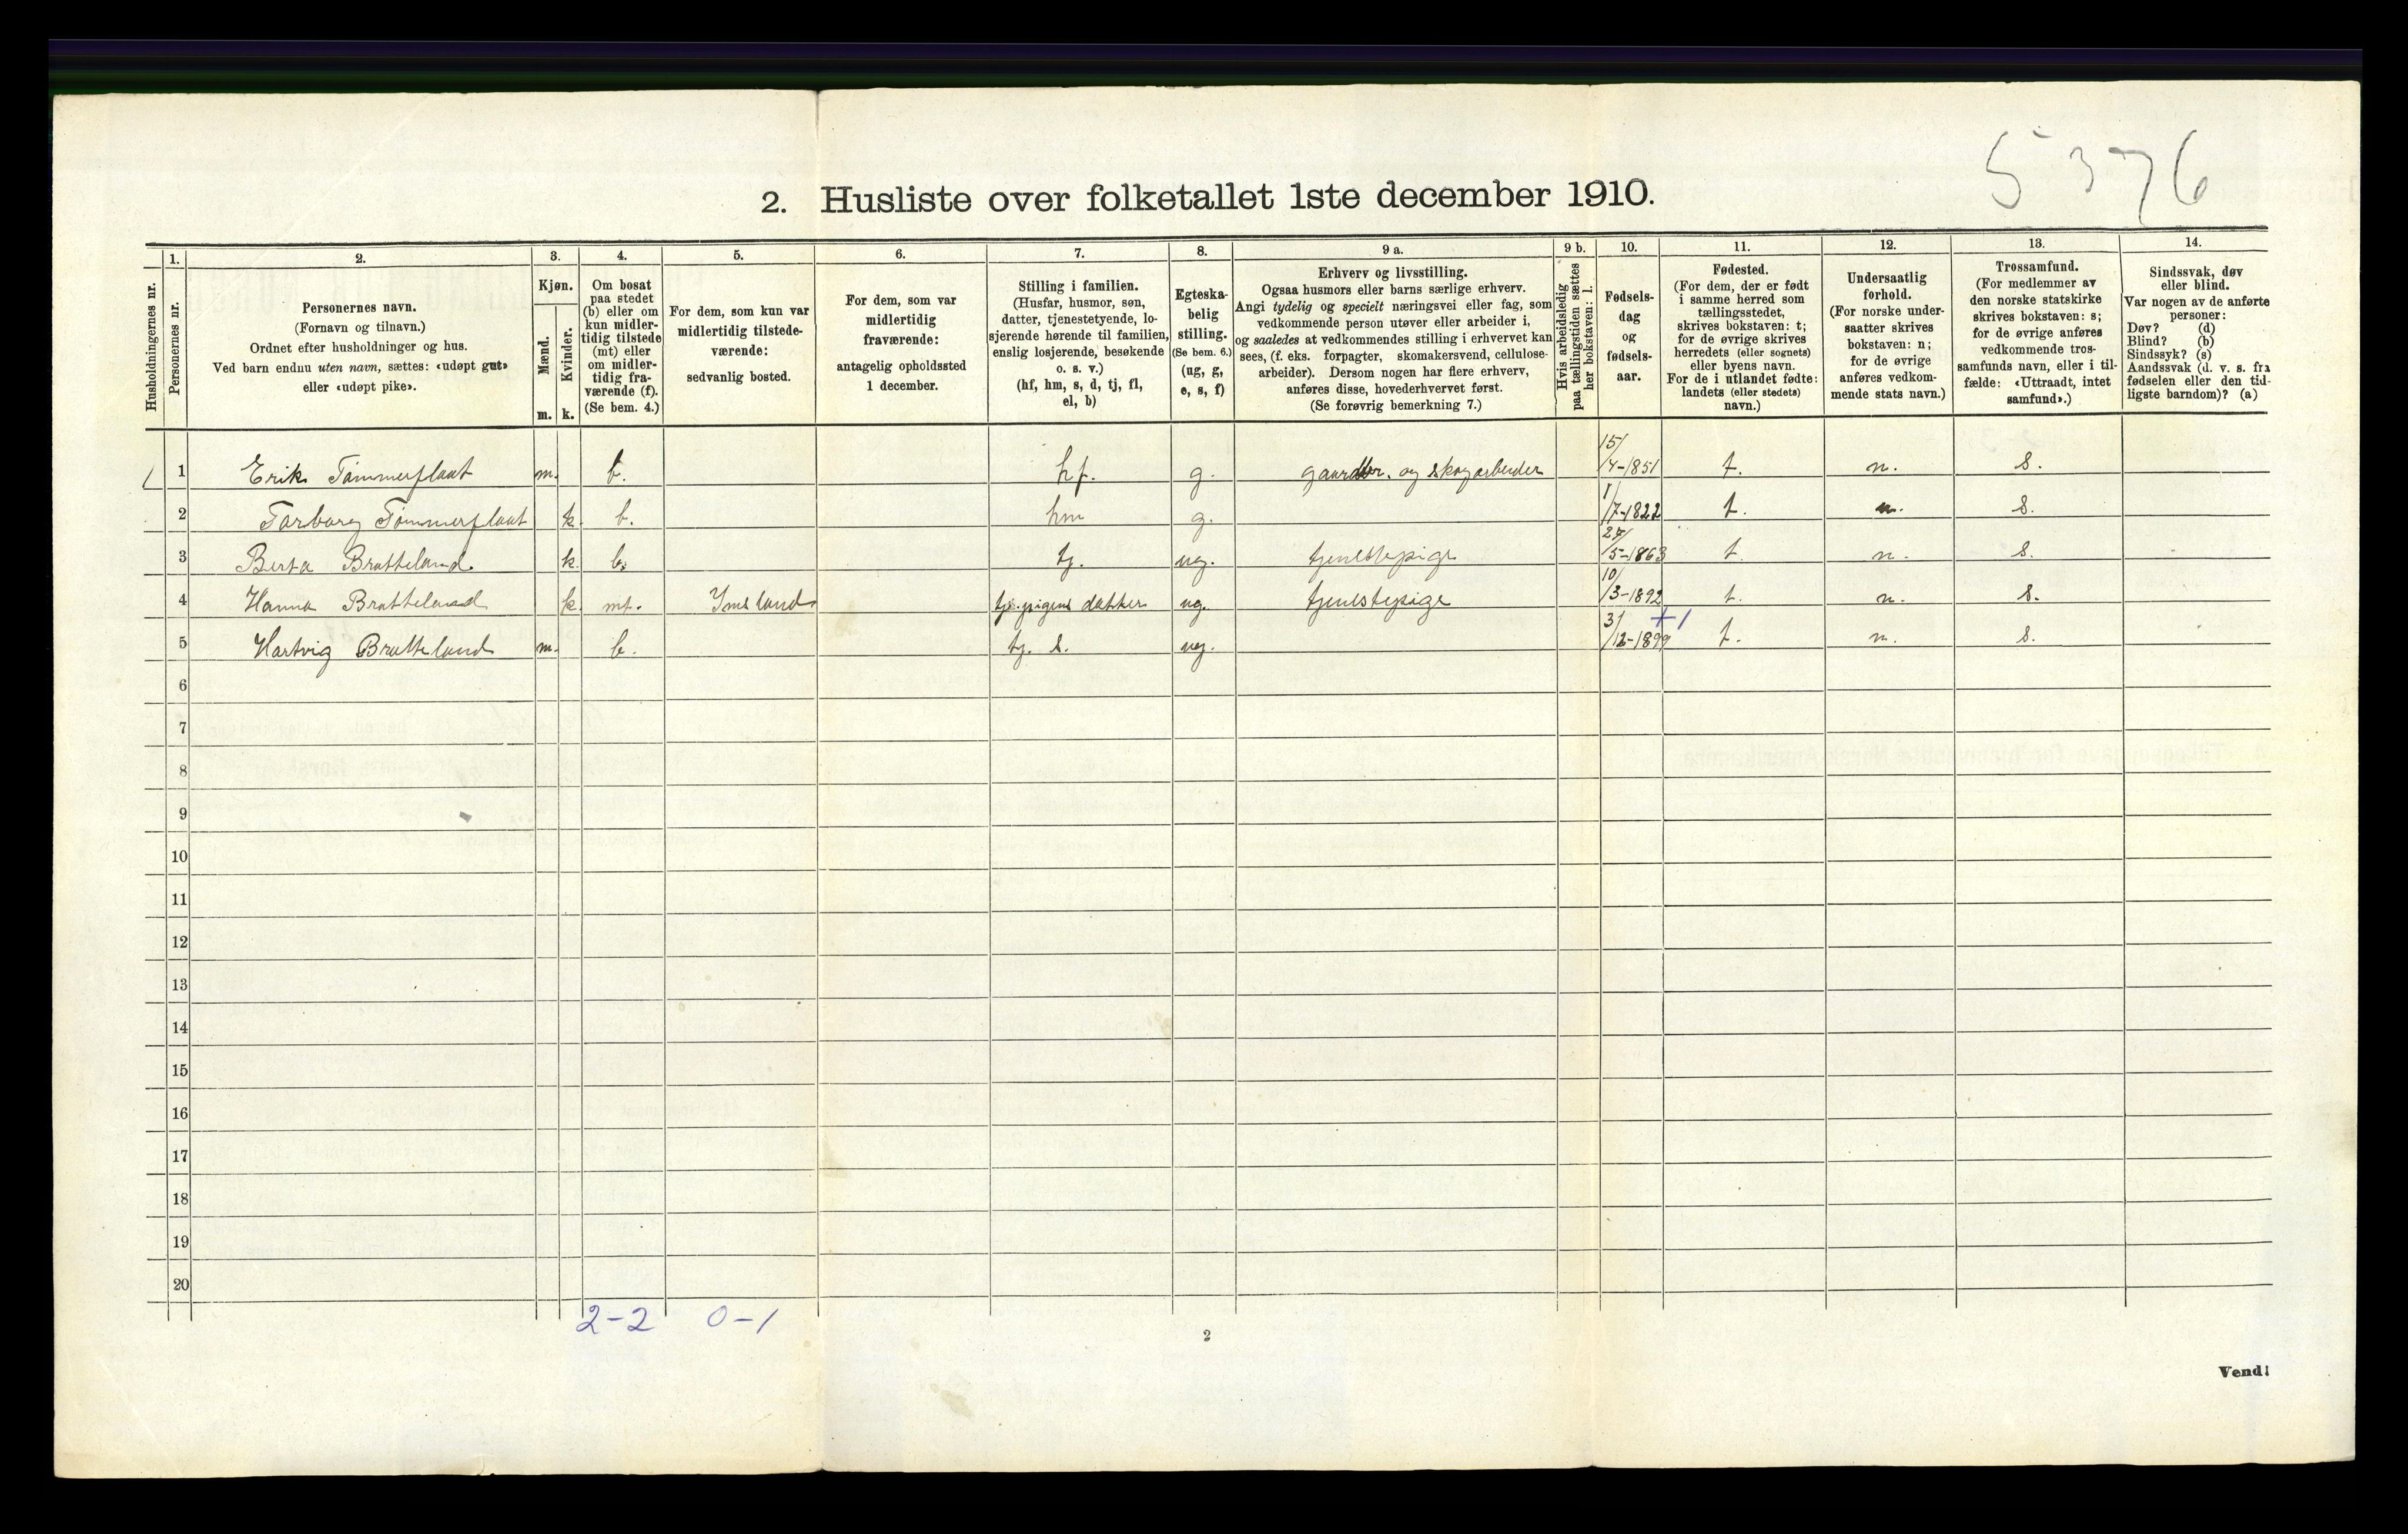 5376
2. Husliste over folketallet 1ste december 1910.
Husholdningernes nr.
1.
Personernes nr.
2.
Personernes navn.
(Fornavn og tilnavn.)
Ordnet efter husholdninger og hus.
Ved barn endnu uten navn, sættes: «udøpt gut»
eller «udøpt pike».
3.
Kjøn.
Mænd.
m.
Kvinder.
k.
4.
Om bosat
paa stedet
(b) eller om
kun midler-
tidig tilstede
(mt) eller
om midler-
tidig fra-
værende (f).
(Se bem. 4.)
5.
For dem, som kun var
midlertidig tilstede-
værende:
sedvanlig bosted.
6.
For dem, som var
midlertidig
fraværende:
antagelig opholdssted
1 december.
7.
Stilling i familien.
(Husfar, husmor, søn,
datter, tjenestetyende, lo-
sjerende hørende til familien,
enslig losjerende, besøkende
o. s. v.)
(hf, hm, s, d, tj, fl,
el, b)
8.
Egteska-
belig
stilling.
(Se bem. 6.)
(ug, g,
e, s, f)
9 a.
Erhverv og livsstilling.
Ogsaa husmors eller barns særlige erhverv.
Angi tydelig og specielt næringsvei eller fag, som
vedkommende person utøver eller arbeider i,
og saaledes at vedkommendes stilling i erhvervet kan
sees, (f. eks. forpagter, skomakersvend, cellulose-
arbeider). Dersom nogen har flere erhverv,
anføres disse, hovederhvervet først.
(Se forøvrig bemerkning 7.)
9 b.
Hvis arbeidsledig
paa tællingstiden sættes
her bokstaven: l.
10.
Fødsels-
dag
og
fødsels-
aar.
11.
Fødested.
(For dem, der er født
i samme herred som
tællingsstedet,
skrives bokstaven: t;
for de øvrige skrives
herredets (eller sognets)
eller byens navn.
For de i utlandet fødte:
landets (eller stedets)
navn.)
12.
Undersaatlig
forhold.
(For norske under-
saatter skrives
bokstaven: n;
for de øvrige
anføres vedkom-
mende stats navn.)
13.
Trossamfund.
(For medlemmer av
den norske statskirke
skrives bokstaven: s;
for de øvrige anføres
vedkommende tros-
samfunds navn, eller i til-
fælde: «Uttraadt, intet
samfund».)
14.
Sindssvak, døv
eller blind.
Var nogen av de anførte
personer:
Døv? (d)
Blind? (b)
Sindssyk? (s)
Aandssvak (d. v. s. fra
fødselen eller den tid-
ligste barndom)? (a)
1 Erik Tømmerflaat m. b. hf. g. og skogarbeider 15/4-1851 t. n. s.
2 Torborg Tømmerflaat k. b. hm g. 1/7-1822 t. n. s.
3 Berta Bratteland k. b. tj. ug. tjenestepige 27/5-1863 t. n. s.
4 Hanna Bratteland k. mt. Imsland tj. pigens datter ug. tjenestepige 10/3-1892 t. n. s.
5 Hartvig Bratteland m. b. tj. s. ug. 31/12-1899 +1 t. n. s.
6
7
8
9
10
11
12
13
14
15
16
17
18
19
20
2-2 0-1
2
Vend!